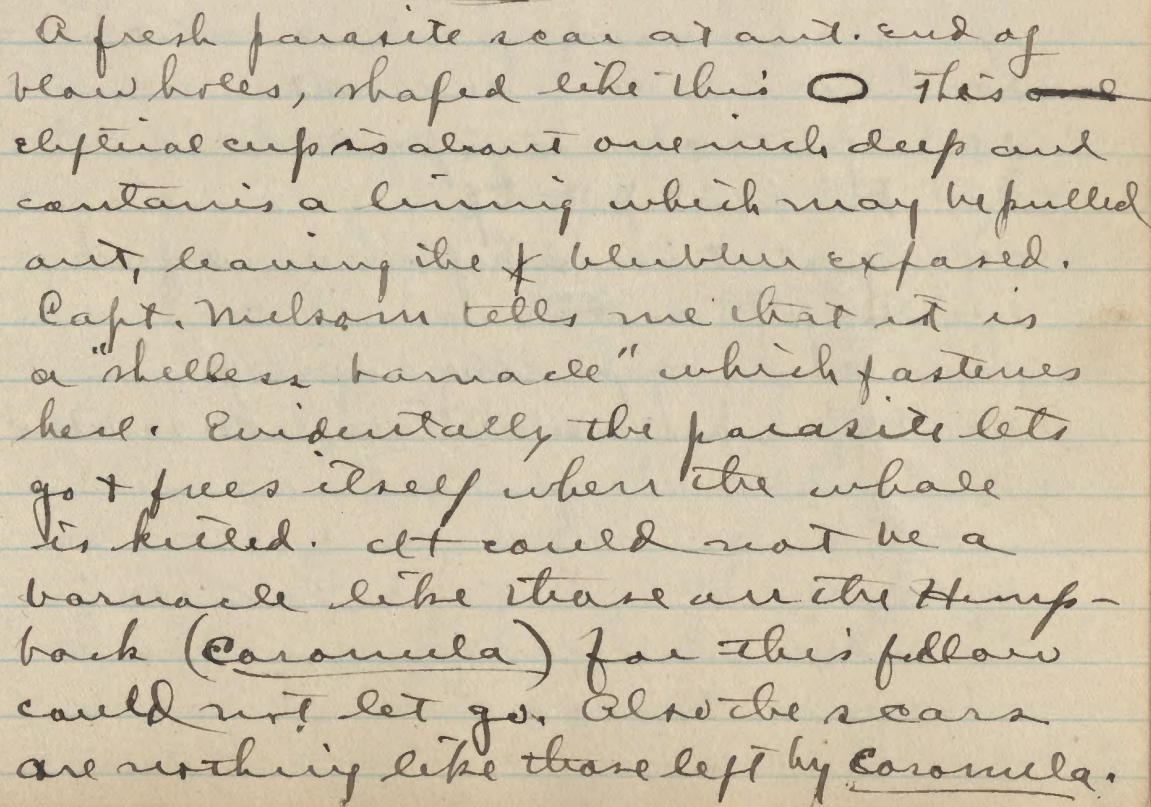 A fresh parasite scar at ant. end of
blow holes, shaped like this O This
eliptical cup is about one inch deep and
contains a lining which may be pulled
out, leaving the blubber exposed.
Capt. Melsom tells me that it is
a "shelless barnacle" which fastenes
here. Evidentally the parasite lets
go + frees itself when the whale
is killed. It could not be a
barnacle like those on the Hump-
back (Coronula) for this fellow
could not let go. Also the scars
are nothing like those left by Coronula.